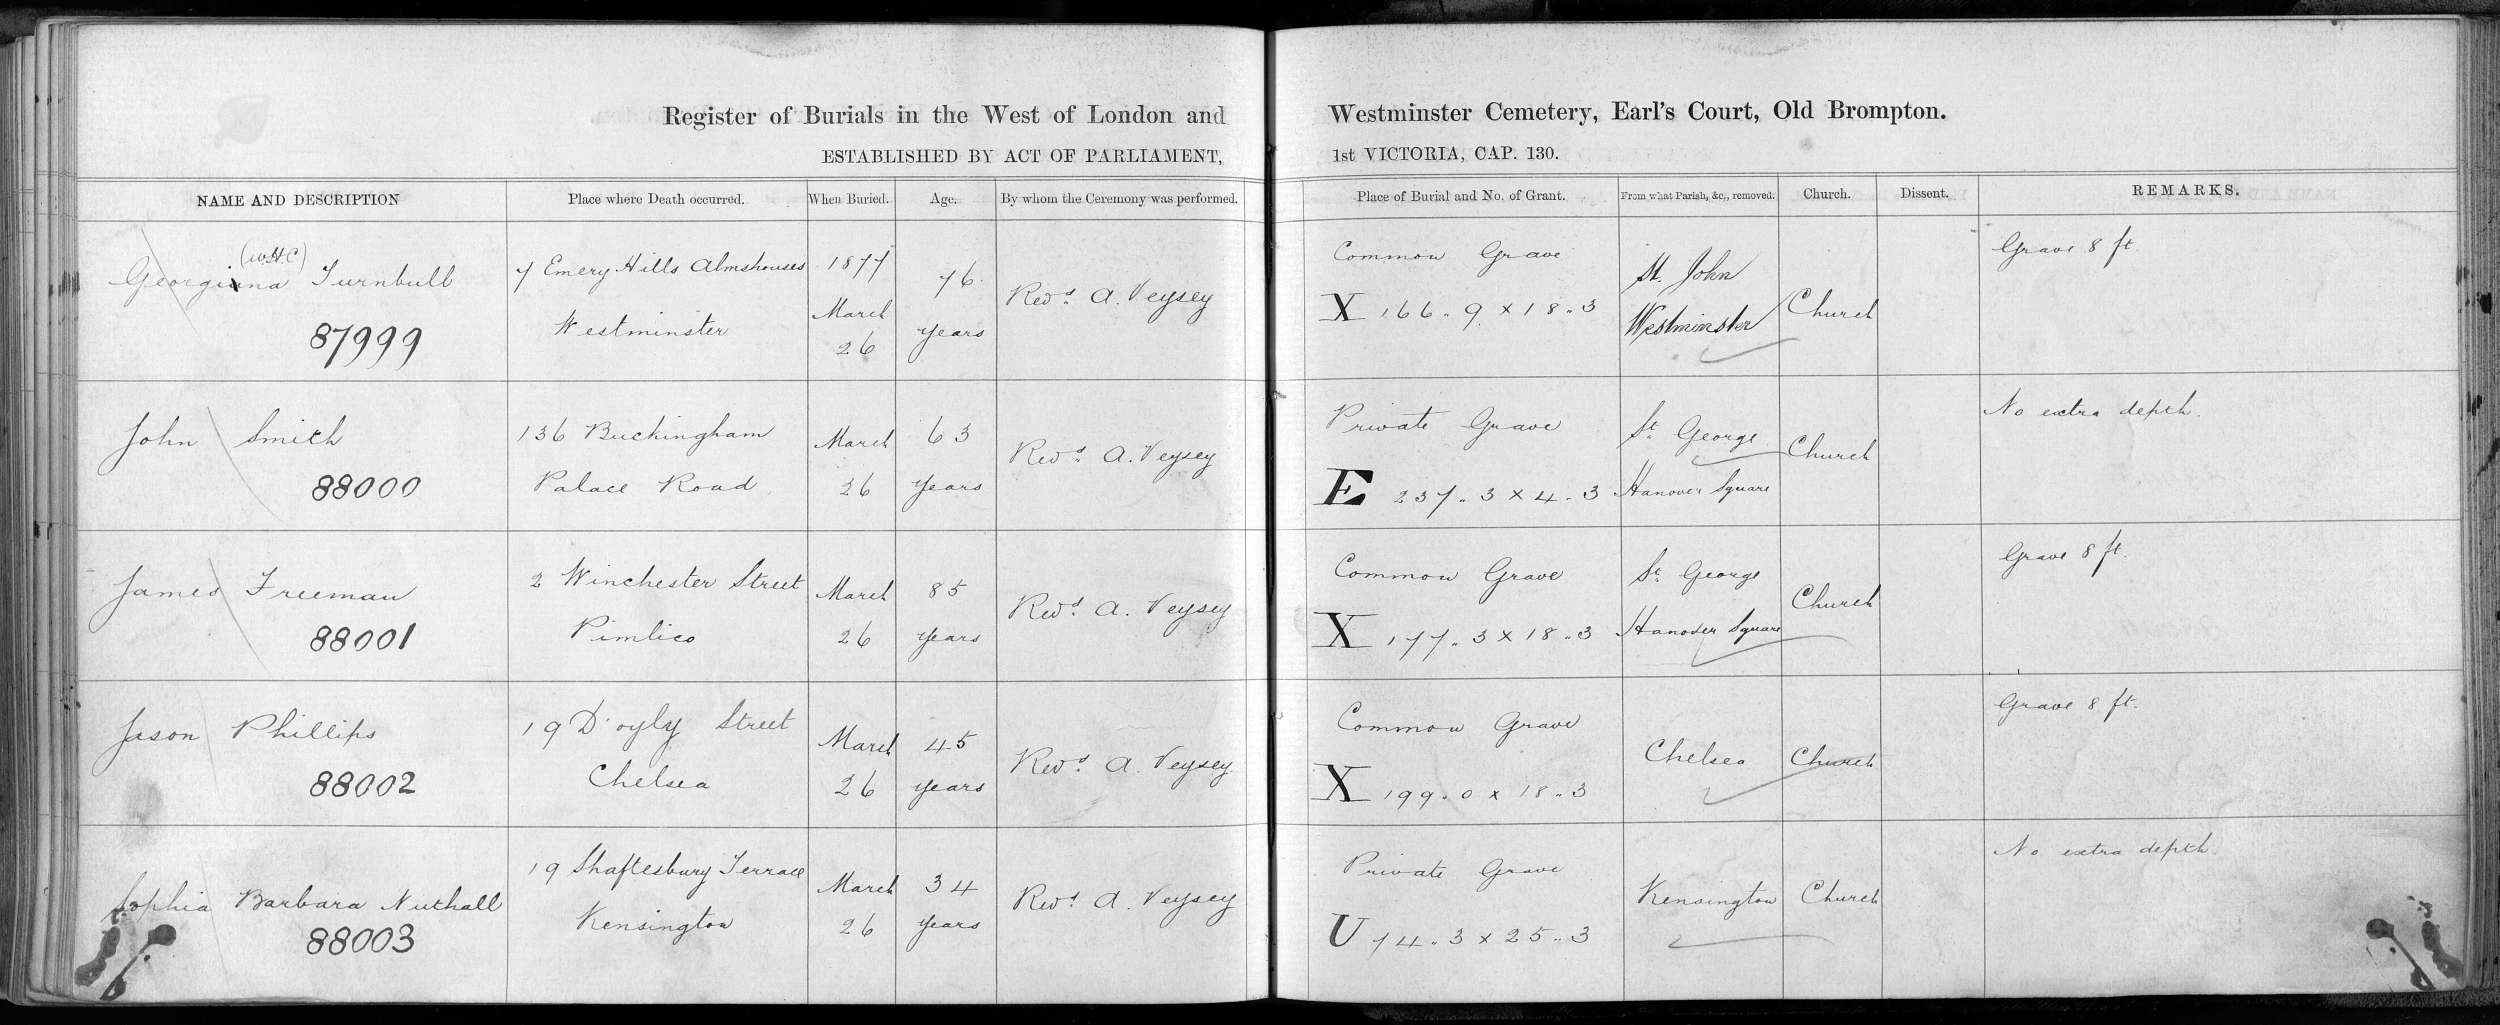 Register of Burials in the West of London and Westminster Cemetery, Earl's Court, Old Brompton.
ESTABLISHED BY ACT OF PARLIAMENT, 1st VICTORIA, CAP. 130.
NAME AND DESCRIPTION Place where Death occurred. When Buried. Age. By whom the Ceremony was performed. Place of Burial and No. of Grant. From what Parish, &c., removed. Church. Dissent. REMARKS.
(W.H.C)
Georgiana Turnbull
87999
7 Emery Hills Almshouses
Westminster
1877
March
26
76
years
Revd. A. Veysey
Common Grave
X 166.. 9 x 18.. 3
St. John
Westminster
Church
Grave 8 ft
John Smith
88000
136 Buckingham
Palace Road
March
26
63
years
Revd. A. Veysey
Private Grave
E 237.. 3 x 4.. 3
St. George
Hanover Square
Church
No extra depth.
James Freeman
88001
2 Winchester Street
Pimlico
March
26
85
years
Revd. A. Veysey
Common Grave
X 177.. 3 x 18.. 3
St. George
Hanover Square
Church
Grave 8 ft.
Jason Phillips
88002
19 D'oyly Street
Chelsea
March
26
45
years
Revd. A. Veysey
Common Grave
X 199.. 0 x 18.. 3
Chelsea
Church
Grave 8 ft.
Sophia Barbara Nuthall
88003
19 Shaftesbury Terrace
Kensington
March
26
34
years
Revd. A. Veysey
Private Grave
U 74.. 3 x 25.. 3
Kensington
Church
No extra depth